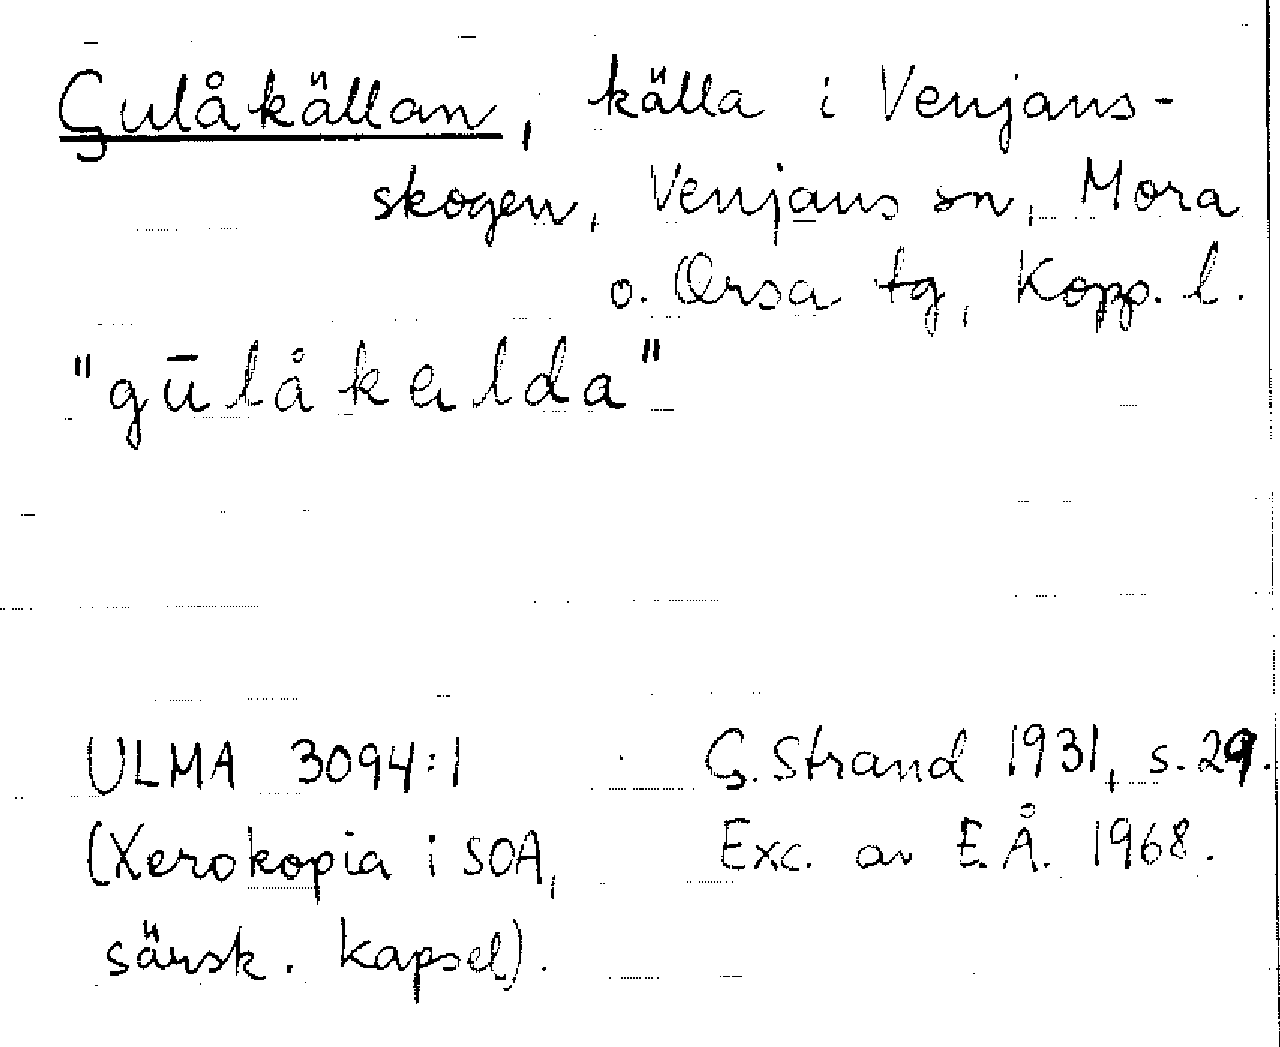 Gulåkällan, källa i Venjans-
skogen, Venjans sn, Mora
o. Orsa tg, Kopp. l.
"gūlåkalda"
ULMA 3094:1 G. Strand 1931, s. 29.
(Xerokopia i SOA, Exc. av E.Å. 1968.
särsk. kapsel).